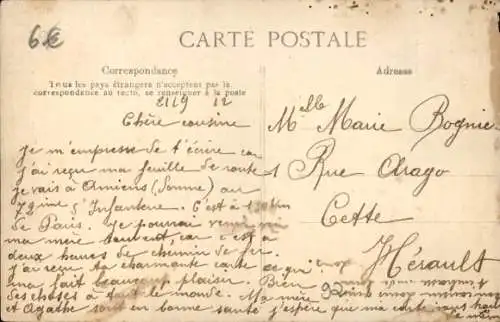 6€
CARTE POSTALE
Correspondance
Tous les pays étrangers n'acceptent pas la
correspondance au recto, se renseigner à la poste
Adresse
Chère cousine
Je m'empresse de t'écrire car
j'ai reçu ma feuille de route
je vais à Amiens (Somme) au
72ième d'Infanterie. C'est à
de Paris. Je pourrai venir
ma mère souvent, car c'est à
deux heures de chemin de fer.
J'ai reçu ta charmante carte
ma fait beaucoup plaisir. Bien
des choses à tout le monde. Ma mère
et Agathe sont en bonne santé j'espère que ma carte vous
de même
Melle Marie Bognier
1 Rue Arago
Cette
Hérault